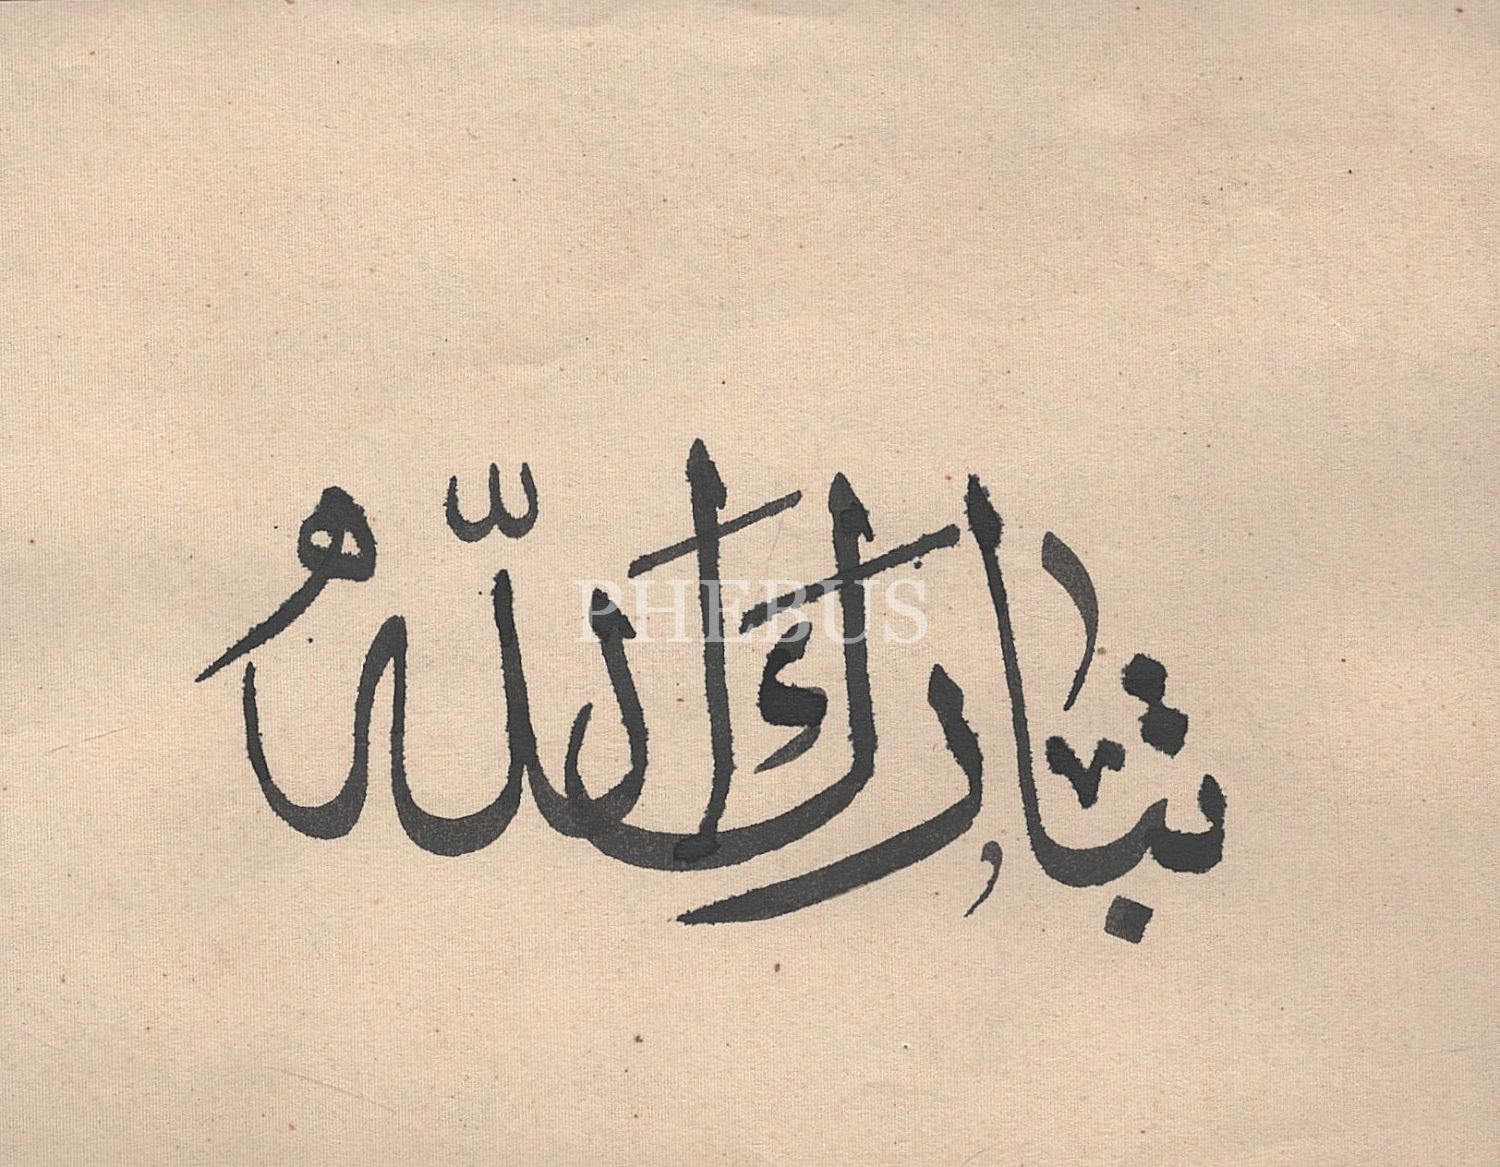 تبارك الله
PHEBUS